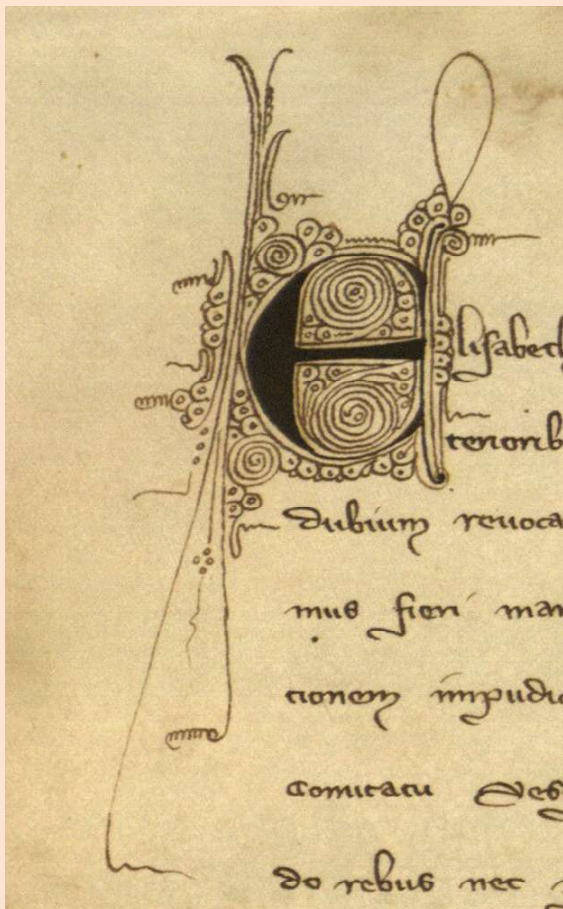 Elisabeth
tenorib
dubium revoca
mus fieri man
cionem impudic
Comitatu Ses
do rebus nec